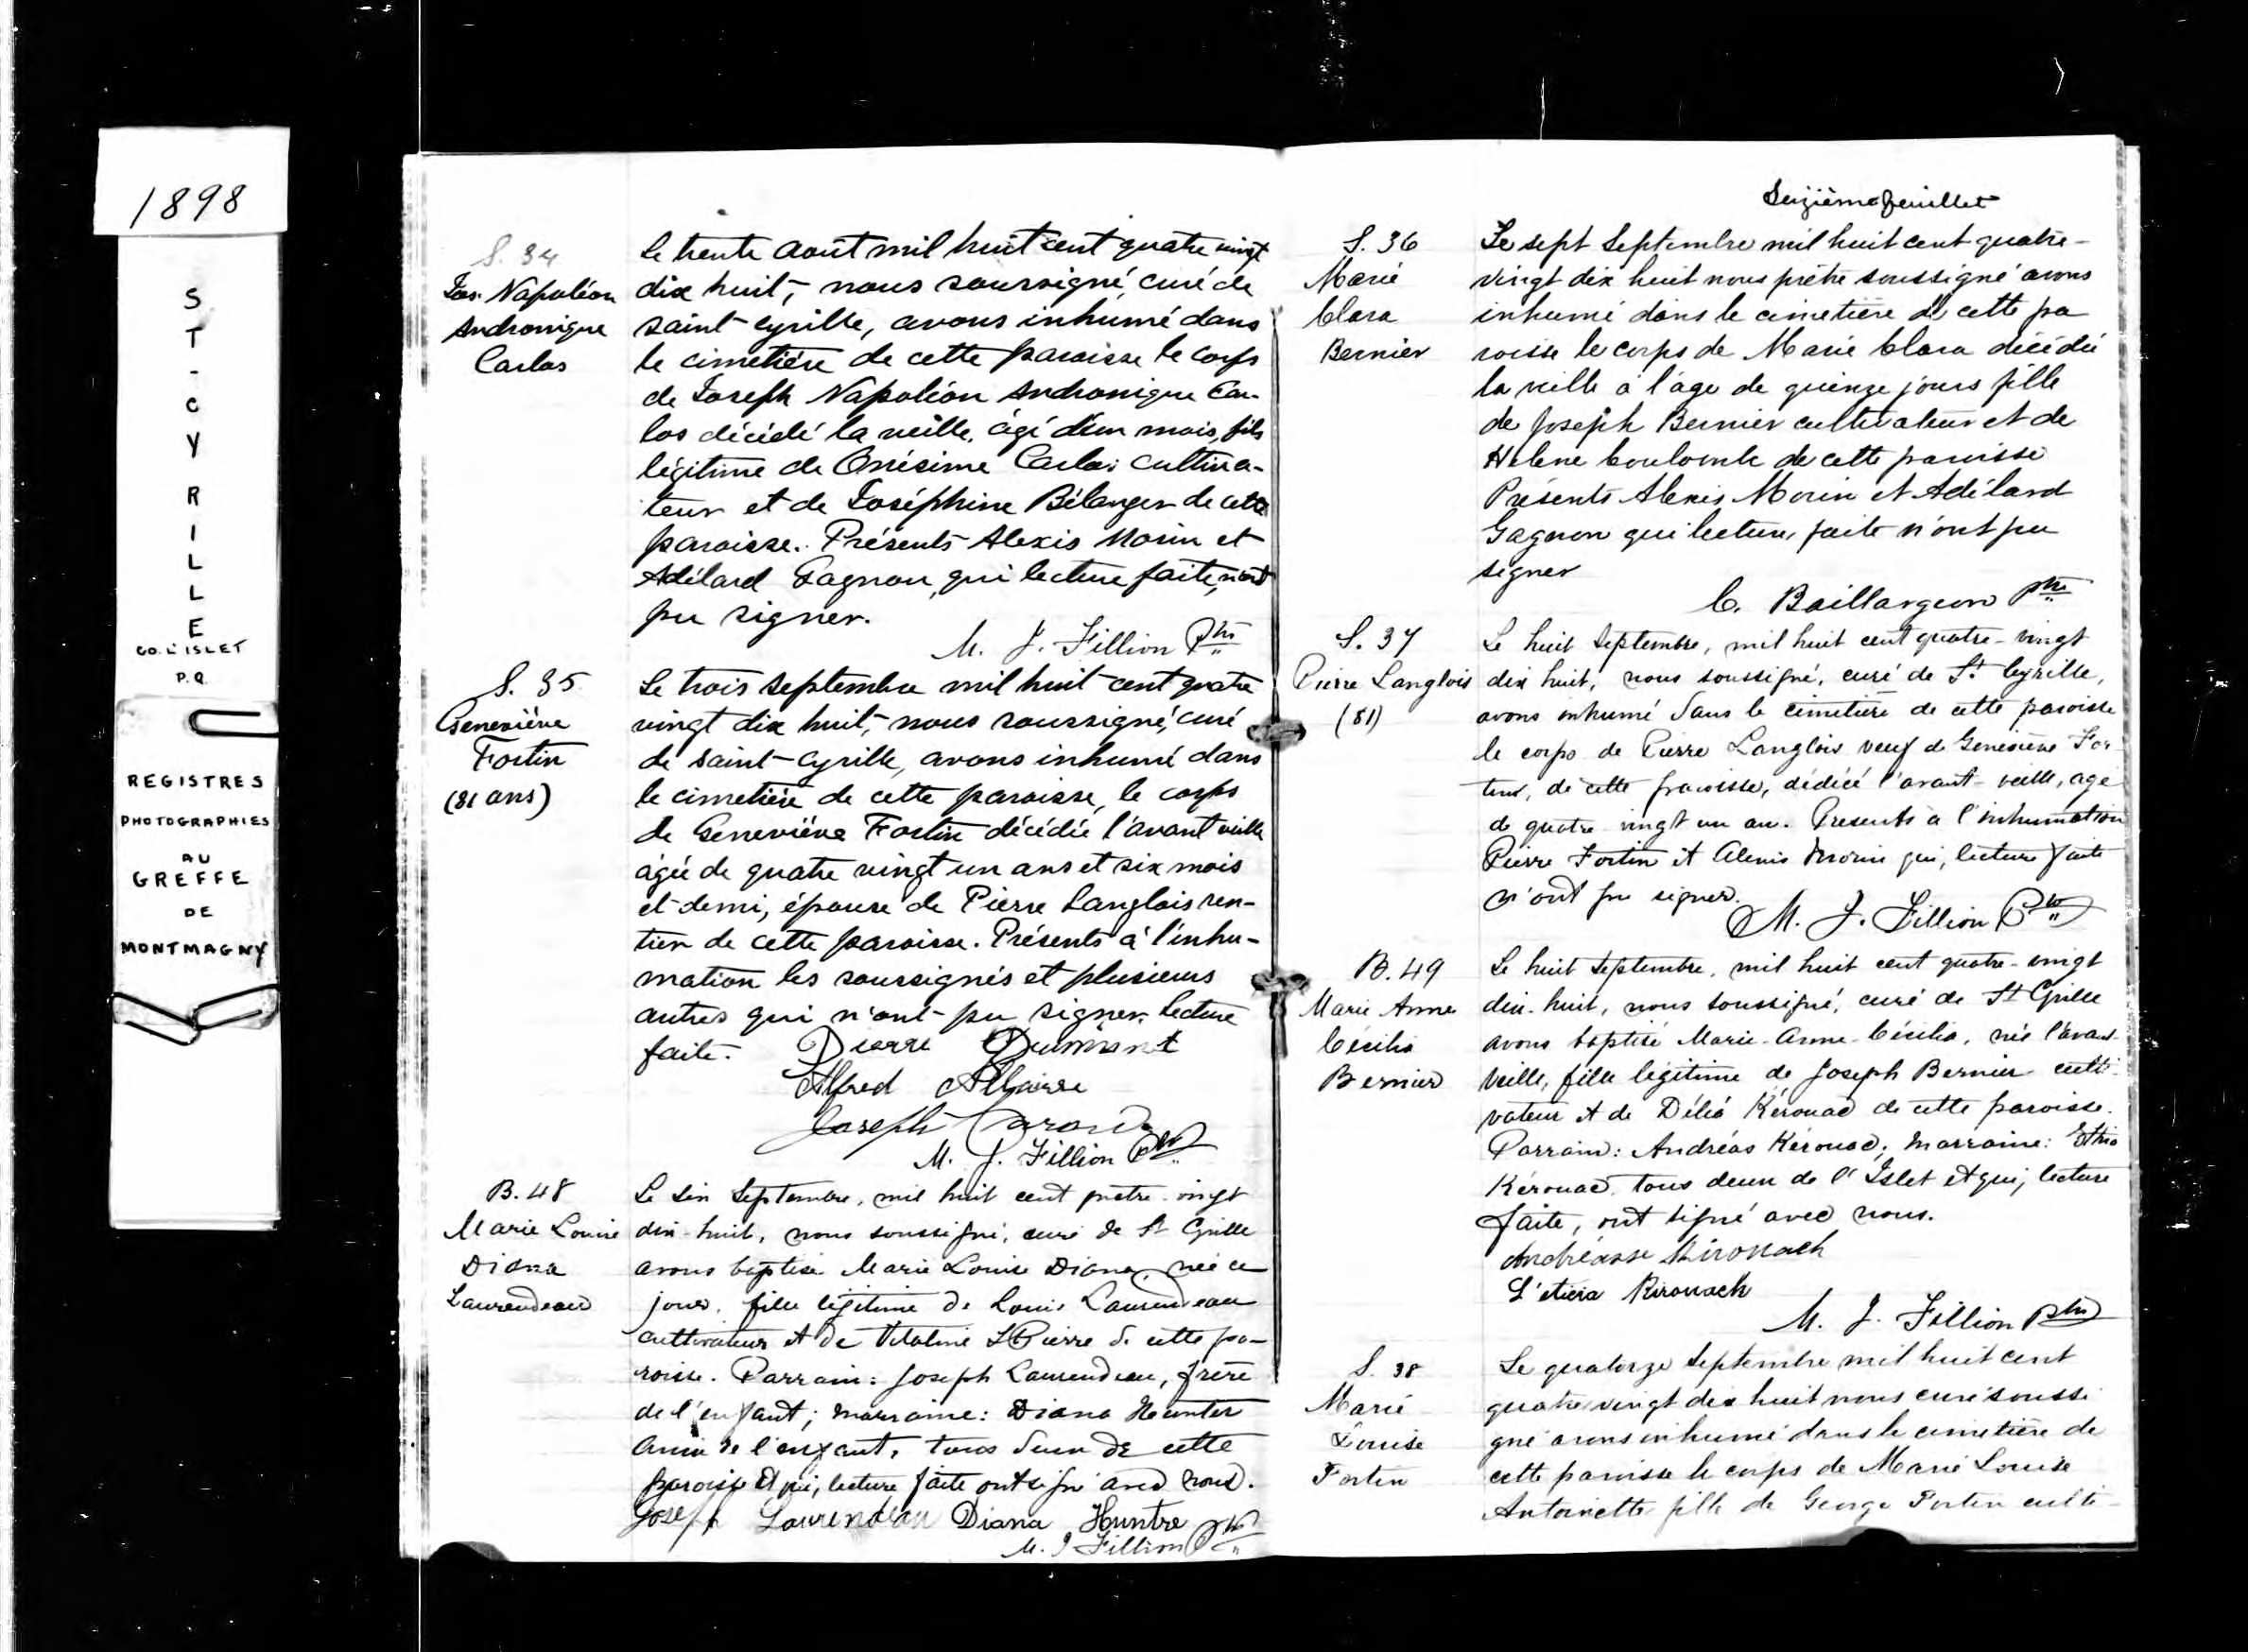 1898
ST-CYRILLE
CO. L'ISLET
P.Q.
REGISTRES
PHOTOGRAPHIES
AU
GREFFE
DE
MONTMAGNY
S. 34
Jos. Napoléon
Andronique
Carlos
le trente août mil huit cent quatre vingt
dix huit, nous soussigné, curé de
saint-Cyrille, avons inhumé dans
le cimetière de cette paroisse le corps
de Joseph Napoléon Andronique Car-
los décédé la veille, âgé d'un mois, fils
légitime de Onésime Carlos cultiva-
teur et de Joséphine Bélanger de cette
paroisse. Présents Alexis Morin et
Adélard Gagnon, qui lecture faite, n'ont
pu signer.
M. J. Fillion Ptre
S. 35
Geneviève
Fortin
(81 ans)
Le trois septembre mil huit cent quatre
vingt dix huit, nous soussigné, curé
de Saint-Cyrille, avons inhumé dans
le cimetière de cette paroisse, le corps
de Geneviève Fortin décédée l'avant veille
âgée de quatre vingt un ans et six mois
et demi, épouse de Pierre Langlois ren-
tier de cette paroisse. Présents à l'inhu-
mation les soussignés et plusieurs
autres qui n'ont pu signer. Lecture
faite.
Pierre Dumont
Alfred
Joseph
M. J. Fillion Ptre
B. 48
Marie Louise
Diana
Laurendeau
Le six Septembre, mil huit cent quatre-vingt
dix-huit, nous soussigné, curé de St Cyrille
avons baptisé Marie Louise Diana, née ce
jour, fille légitime de Louis Laurendeau
cultivateur et de Vitaline St Pierre de cette pa-
roisse. Parrain: Joseph Laurendeau, frère
de l'enfant; marraine: Diana Hunter
de l'enfant, tous deux de cette
paroisse et qui, lecture faite ont signé avec nous.
Joseph Laurendeau Diana Huntre
M. J Fillion Ptre
Seizième feuillet
S. 36
Marie
Clara
Bernier
Le sept Septembre mil huit cent quatre-
vingt dix huit nous prêtre soussigné avons
inhumé dans le cimetière de cette pa
roisse le corps de Marie Clara décédée
la veille à l'âge de quinze jours fille
de Joseph Bernier cultivateur et de
Helène Coulombe de cette paroisse
Présents Alexis Morin et Adélard
Gagnon qui lecture, faite n'ont pu
signer
C. Baillargeon Ptre
S. 37
Pierre Langlois
(81)
Le huit Septembre, mil huit cent quatre-vingt
dix huit, nous soussigné, curé de St Cyrille,
avons inhumé dans le cimetière de cette paroisse
le corps de Pierre Langlois veuf de Geneviève For-
tin, de cette paroisse, décédé l'avant-veille, agé
de quatre-vingt un an. Presents à l'inhumation
Pierre Fortin et Alexis Morin qui, lecture faite
n'ont pu signer.
M. J. Fillion Ptre
B. 49
Marie Anne
Cécilia
Bernier
Le huit Septembre, mil huit cent quatre-vingt
dix-huit, nous soussigné, curé de St Cyrille
avons baptisé Marie-Anne-Cécilia, née l'avant-
veille, fille légitime de Joseph Bernier culti-
vateur et de Délia Kérouac de cette paroisse.
Parrain: Andréas Kérouac; marraine:
Kérouac, tous deux de l'Islet et qui, lecture
faite, ont signé avec nous.
Andréasse Kirouach
L'eticia Kirouach
M. J. Fillion Ptre
S. 38
Marie
Louise
Fortin
Le quatorze Septembre mil huit cent
quatre vingt dix huit nous curé soussi
gné avons inhumé dans le cimetière de
cette paroisse le corps de Marie Louise
Antoinette fille de George Fortin culti-